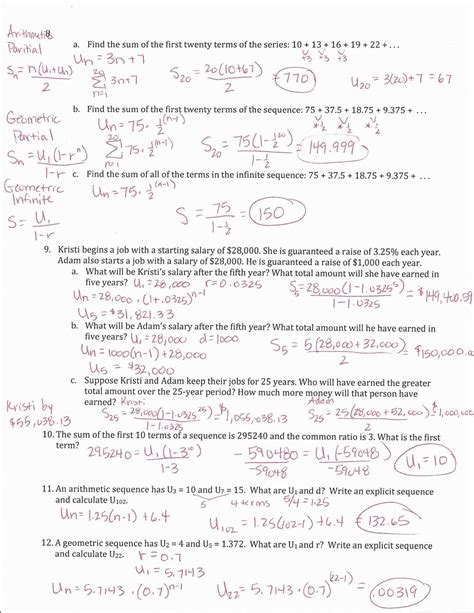 Arithmetic
8.
Partial
a. Find the sum of the first twenty terms of the series: 10 + 13 + 16 + 19 + 22 + . . .
+3 +3 +3
Un = 3n+7
Sn = n(U1+Un)/2
20 Σ n=1 3n+7
S20 = 20(10+67)/2 = 770
U20 = 3(20)+7 = 67
b. Find the sum of the first twenty terms of the sequence: 75 + 37.5 + 18.75 + 9.375 + . . .
Geometric
Partial
Un = 75 · 1/2^(n-1)
Sn = U1(1-r^n)/1-r
20 Σ n=1 75 · 1/2^(n-1)
S20 = 75(1-1/2^20)/1-1/2 = 149.999
c. Find the sum of all of the terms in the infinite sequence: 75 + 37.5 + 18.75 + 9.375 + . . .
Geometric
Infinite
Un = 75 · 1/2^(n-1)
S = U1/1-r
S = 75/1-1/2 = 150
9. Kristi begins a job with a starting salary of $28,000. She is guaranteed a raise of 3.25% each year.
Adam also starts a job with a salary of $28,000. He is guaranteed a raise of $1,000 each year.
a. What will be Kristi's salary after the fifth year? What total amount will she have earned in
five years? U1 = 28,000 r = 0.0325
S5 = 28,000(1-1.0325^5)/1-1.0325 = $149,400.59
Un = 28,000 · (1+.0325)^n-1
U5 = $31,821.33
b. What will be Adam's salary after the fifth year? What total amount will he have earned in
five years? U1 = 28,000 d = 1000
Un = 1000(n-1) + 28,000
S5 = 5(28,000 + 32,000)/2 = $150,000.00
U5 = $32,000
c. Suppose Kristi and Adam keep their jobs for 25 years. Who will have earned the greater
total amount over the 25-year period? How much more money will that person have
earned? Kristi
Adam
Kristi by
$55,038.13
S25 = 28,000(1-1.0325^25)/1-1.0325 = $1,055,038.13
S25 = 25(28,000 + 52,000)/2 = $1,000,000
10. The sum of the first 10 terms of a sequence is 295240 and the common ratio is 3. What is the first
term?
295240 = U1(1-3^10)/1-3
-590480/-59048 = U1(-59048)/-59048
U1 = 10
11. An arithmetic sequence has U3 = 10 and U7 = 15. What are U1 and d? Write an explicit sequence
and calculate U102.
4 terms 5/4 = 1.25
Un = 1.25(n-1) + 6.4
U102 = 1.25(102-1) + 6.4 = 132.65
12. A geometric sequence has U2 = 4 and U5 = 1.372. What are U1 and r? Write an explicit sequence
and calculate U22. r = 0.7
U1 = 5.7143
Un = 5.7143 · (0.7)^n-1
U22 = 5.7143 · (0.7)^(22-1) = .00319